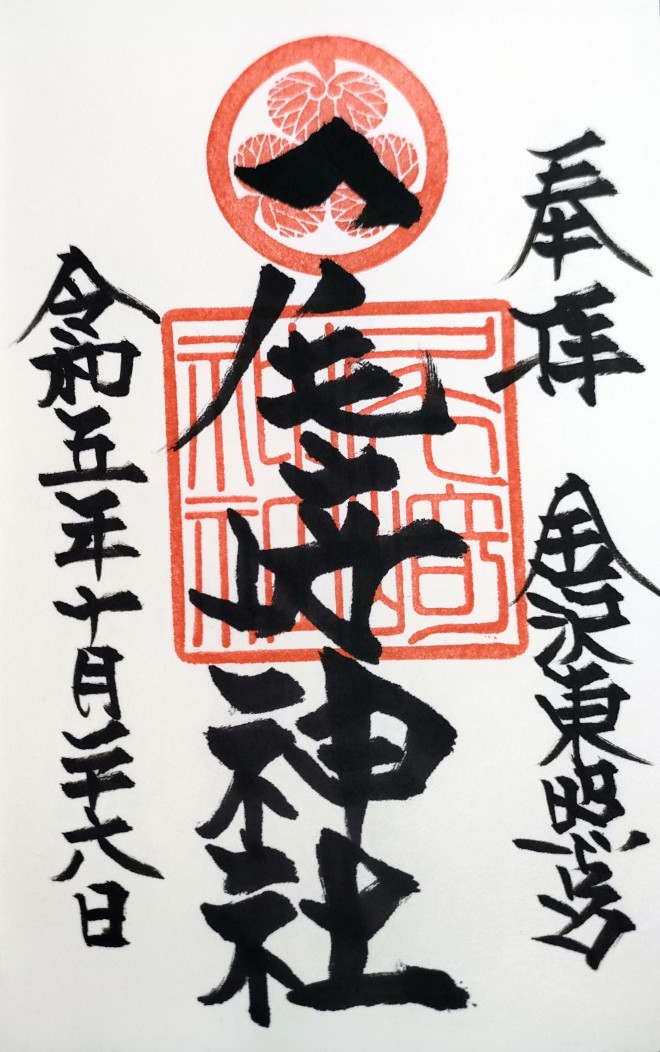 奉拝
金沢東照宮
尾崎神社
尾崎
神社
令和五年十月二十六日